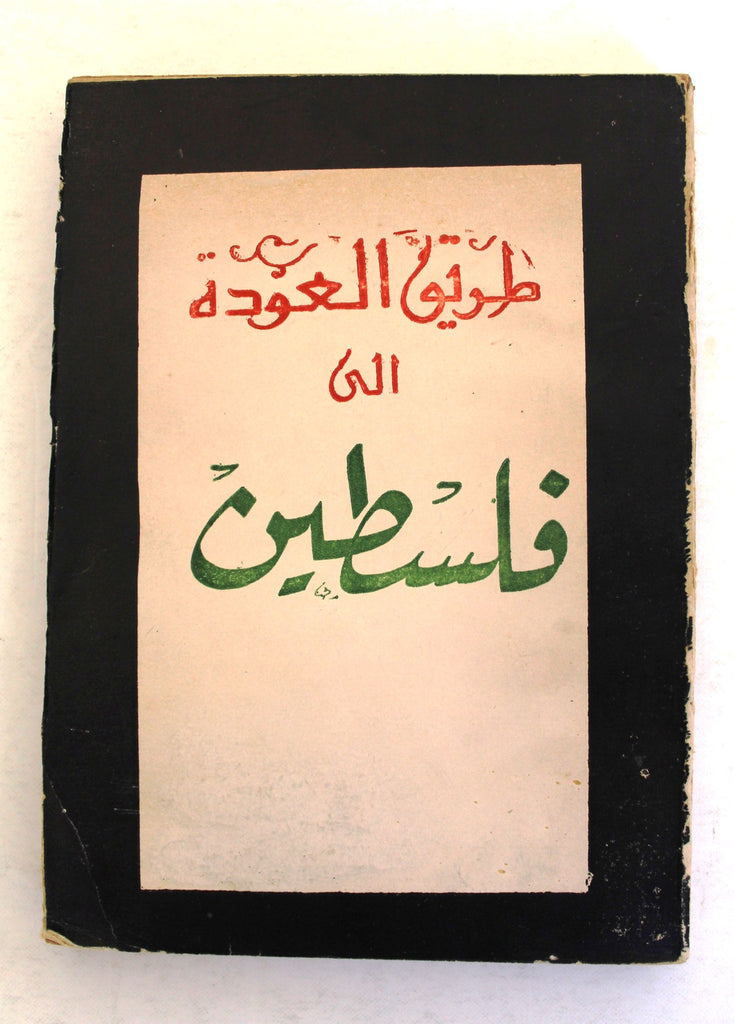 طريق العودة
الى
فلسطين